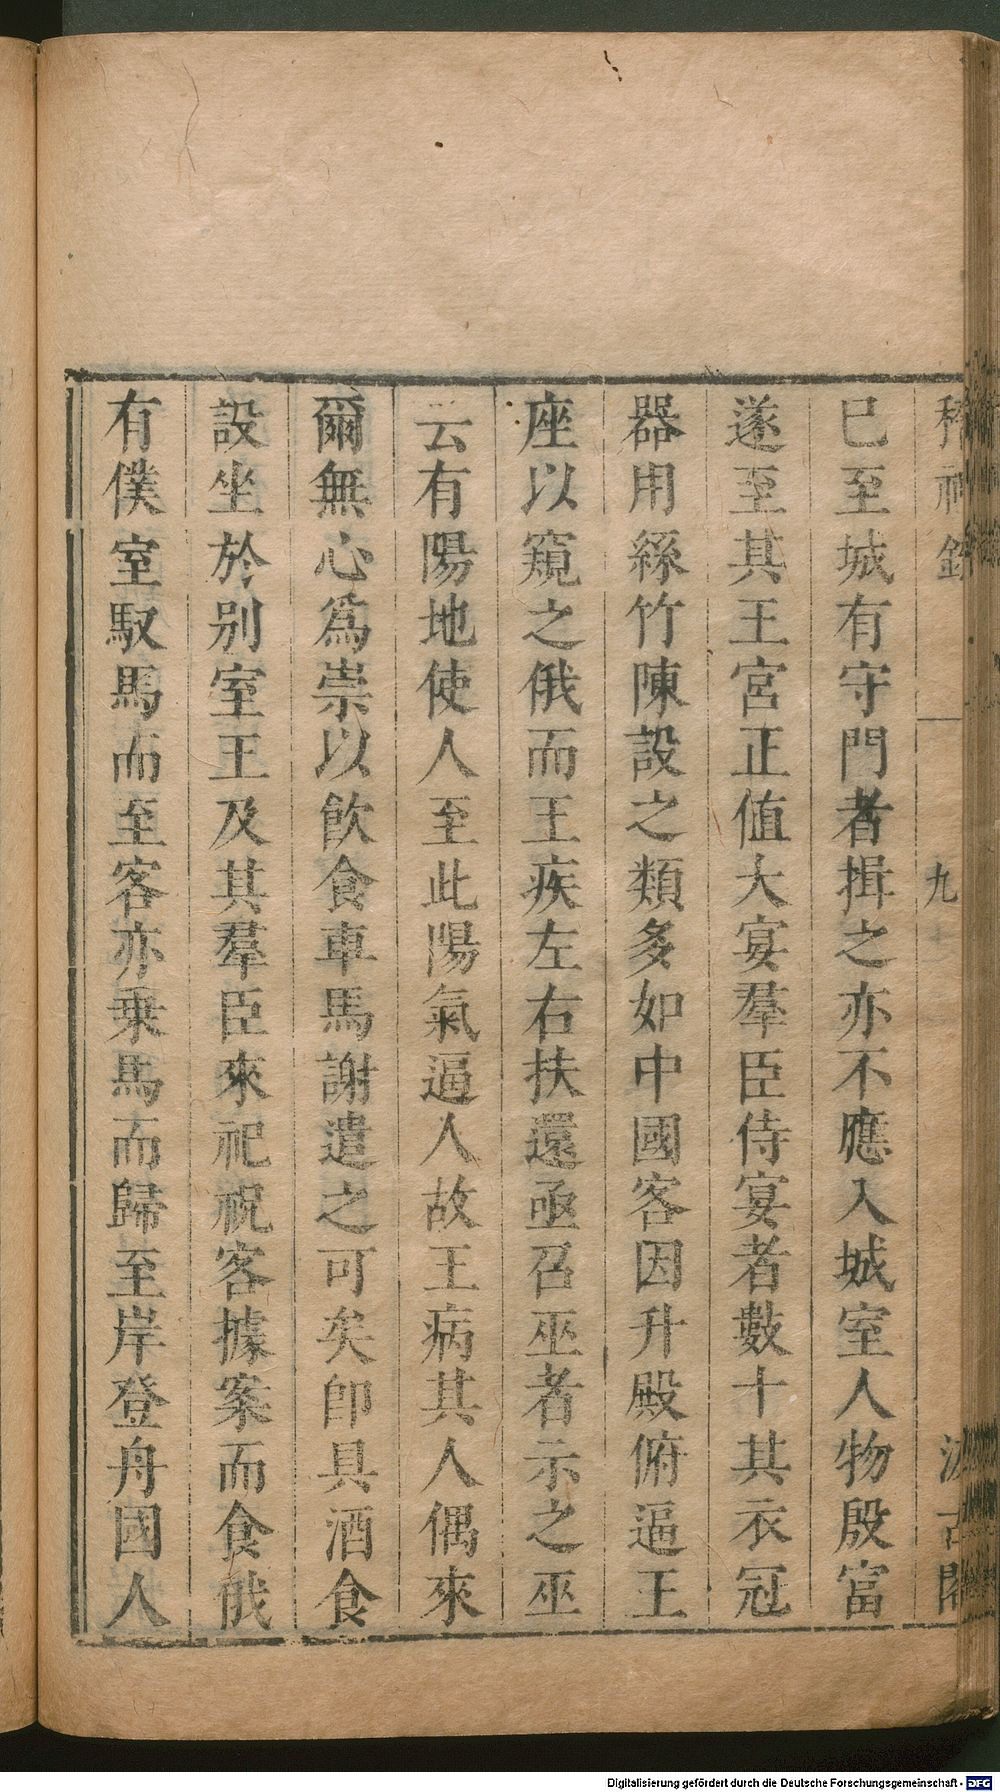 稽神錄 九 汲古閣
已至城有守門者揖之亦不應入城室人物殷富
遂至其王宮正值大宴羣臣侍宴者數十其衣冠
器用絲竹陳設之類多如中國客因升殿俯逼王
座以窺之俄而王疾左右扶還亟召巫者示之巫
云有陽地使人至此陽氣逼人故王病其人偶來
爾無心為祟以飲食車馬謝遣之可矣卽具酒食
設坐於別室王及其羣臣來祀祝客據案而食俄
有僕室馭馬而至客亦乗馬而歸至岸登舟國人
Digitalisierung gefördert durch die Deutsche Forschungsgemeinschaft - DFG